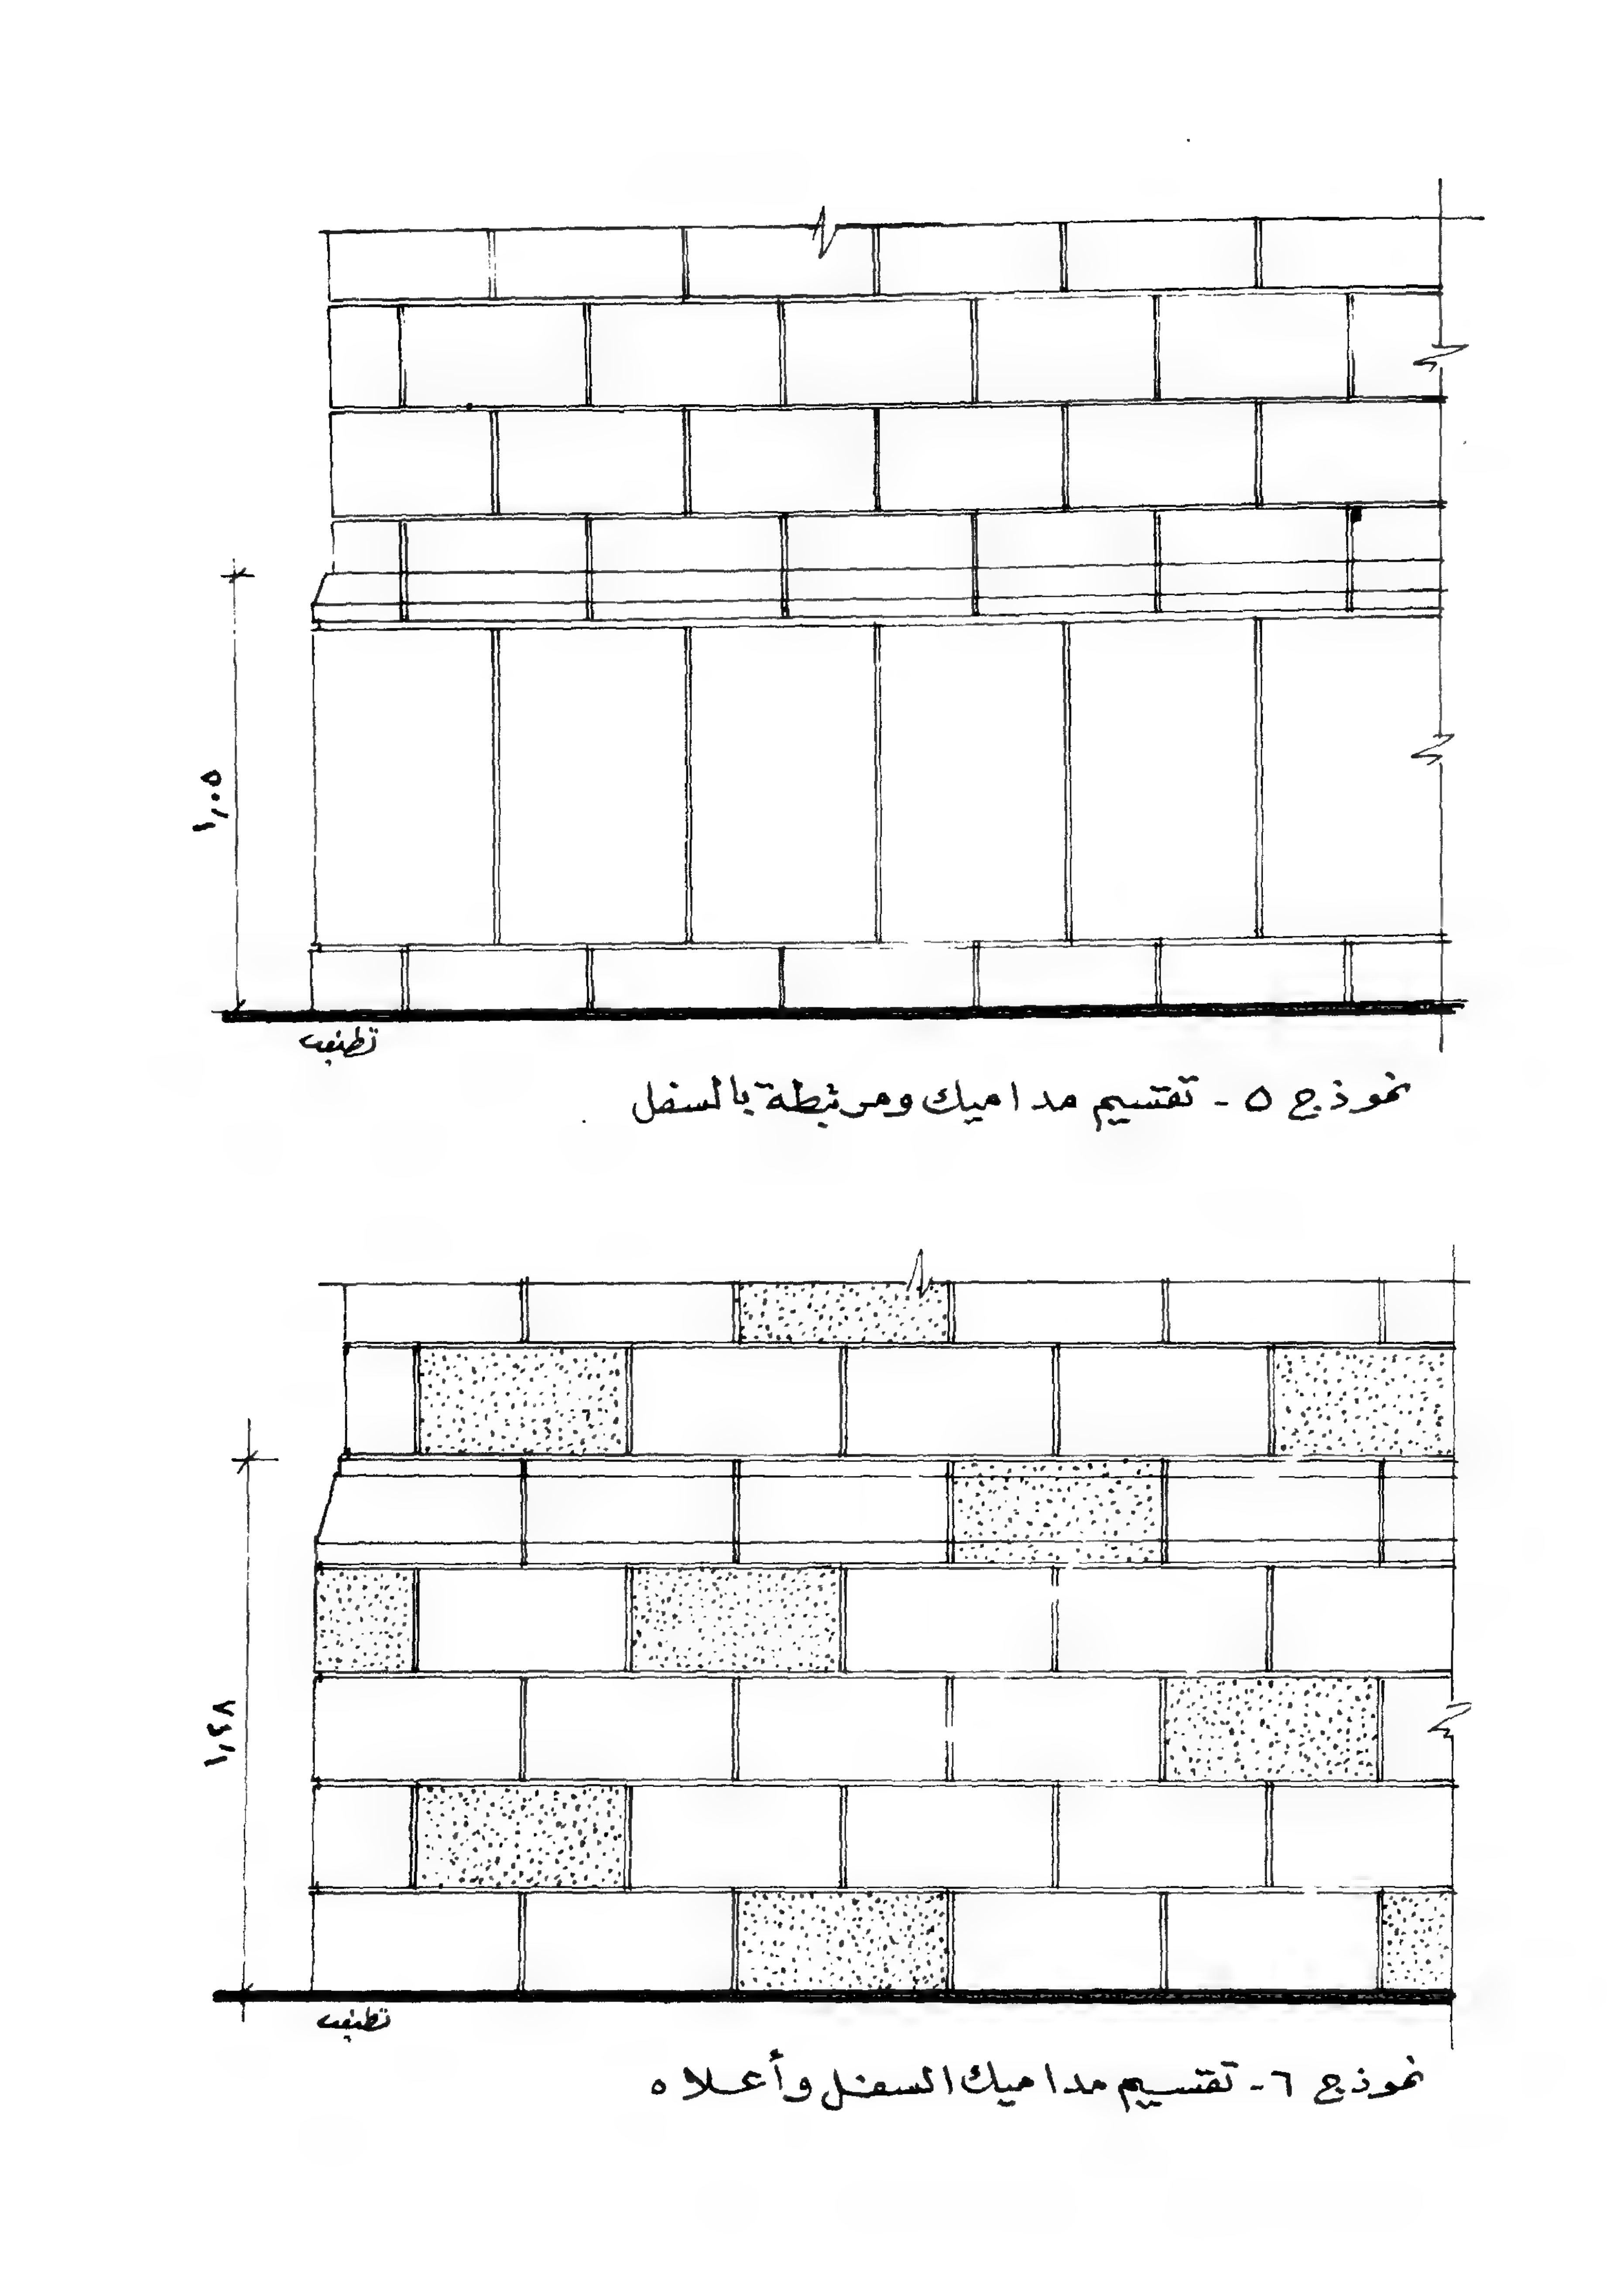 ١,٠٥
تطبيب
نموذج ٥ - تقسيم مداميك ومرتبطة بالسفل
١,٤٨
تطبيب
نموذج ٦ - تقسيم مداميك السفل وأعلاه